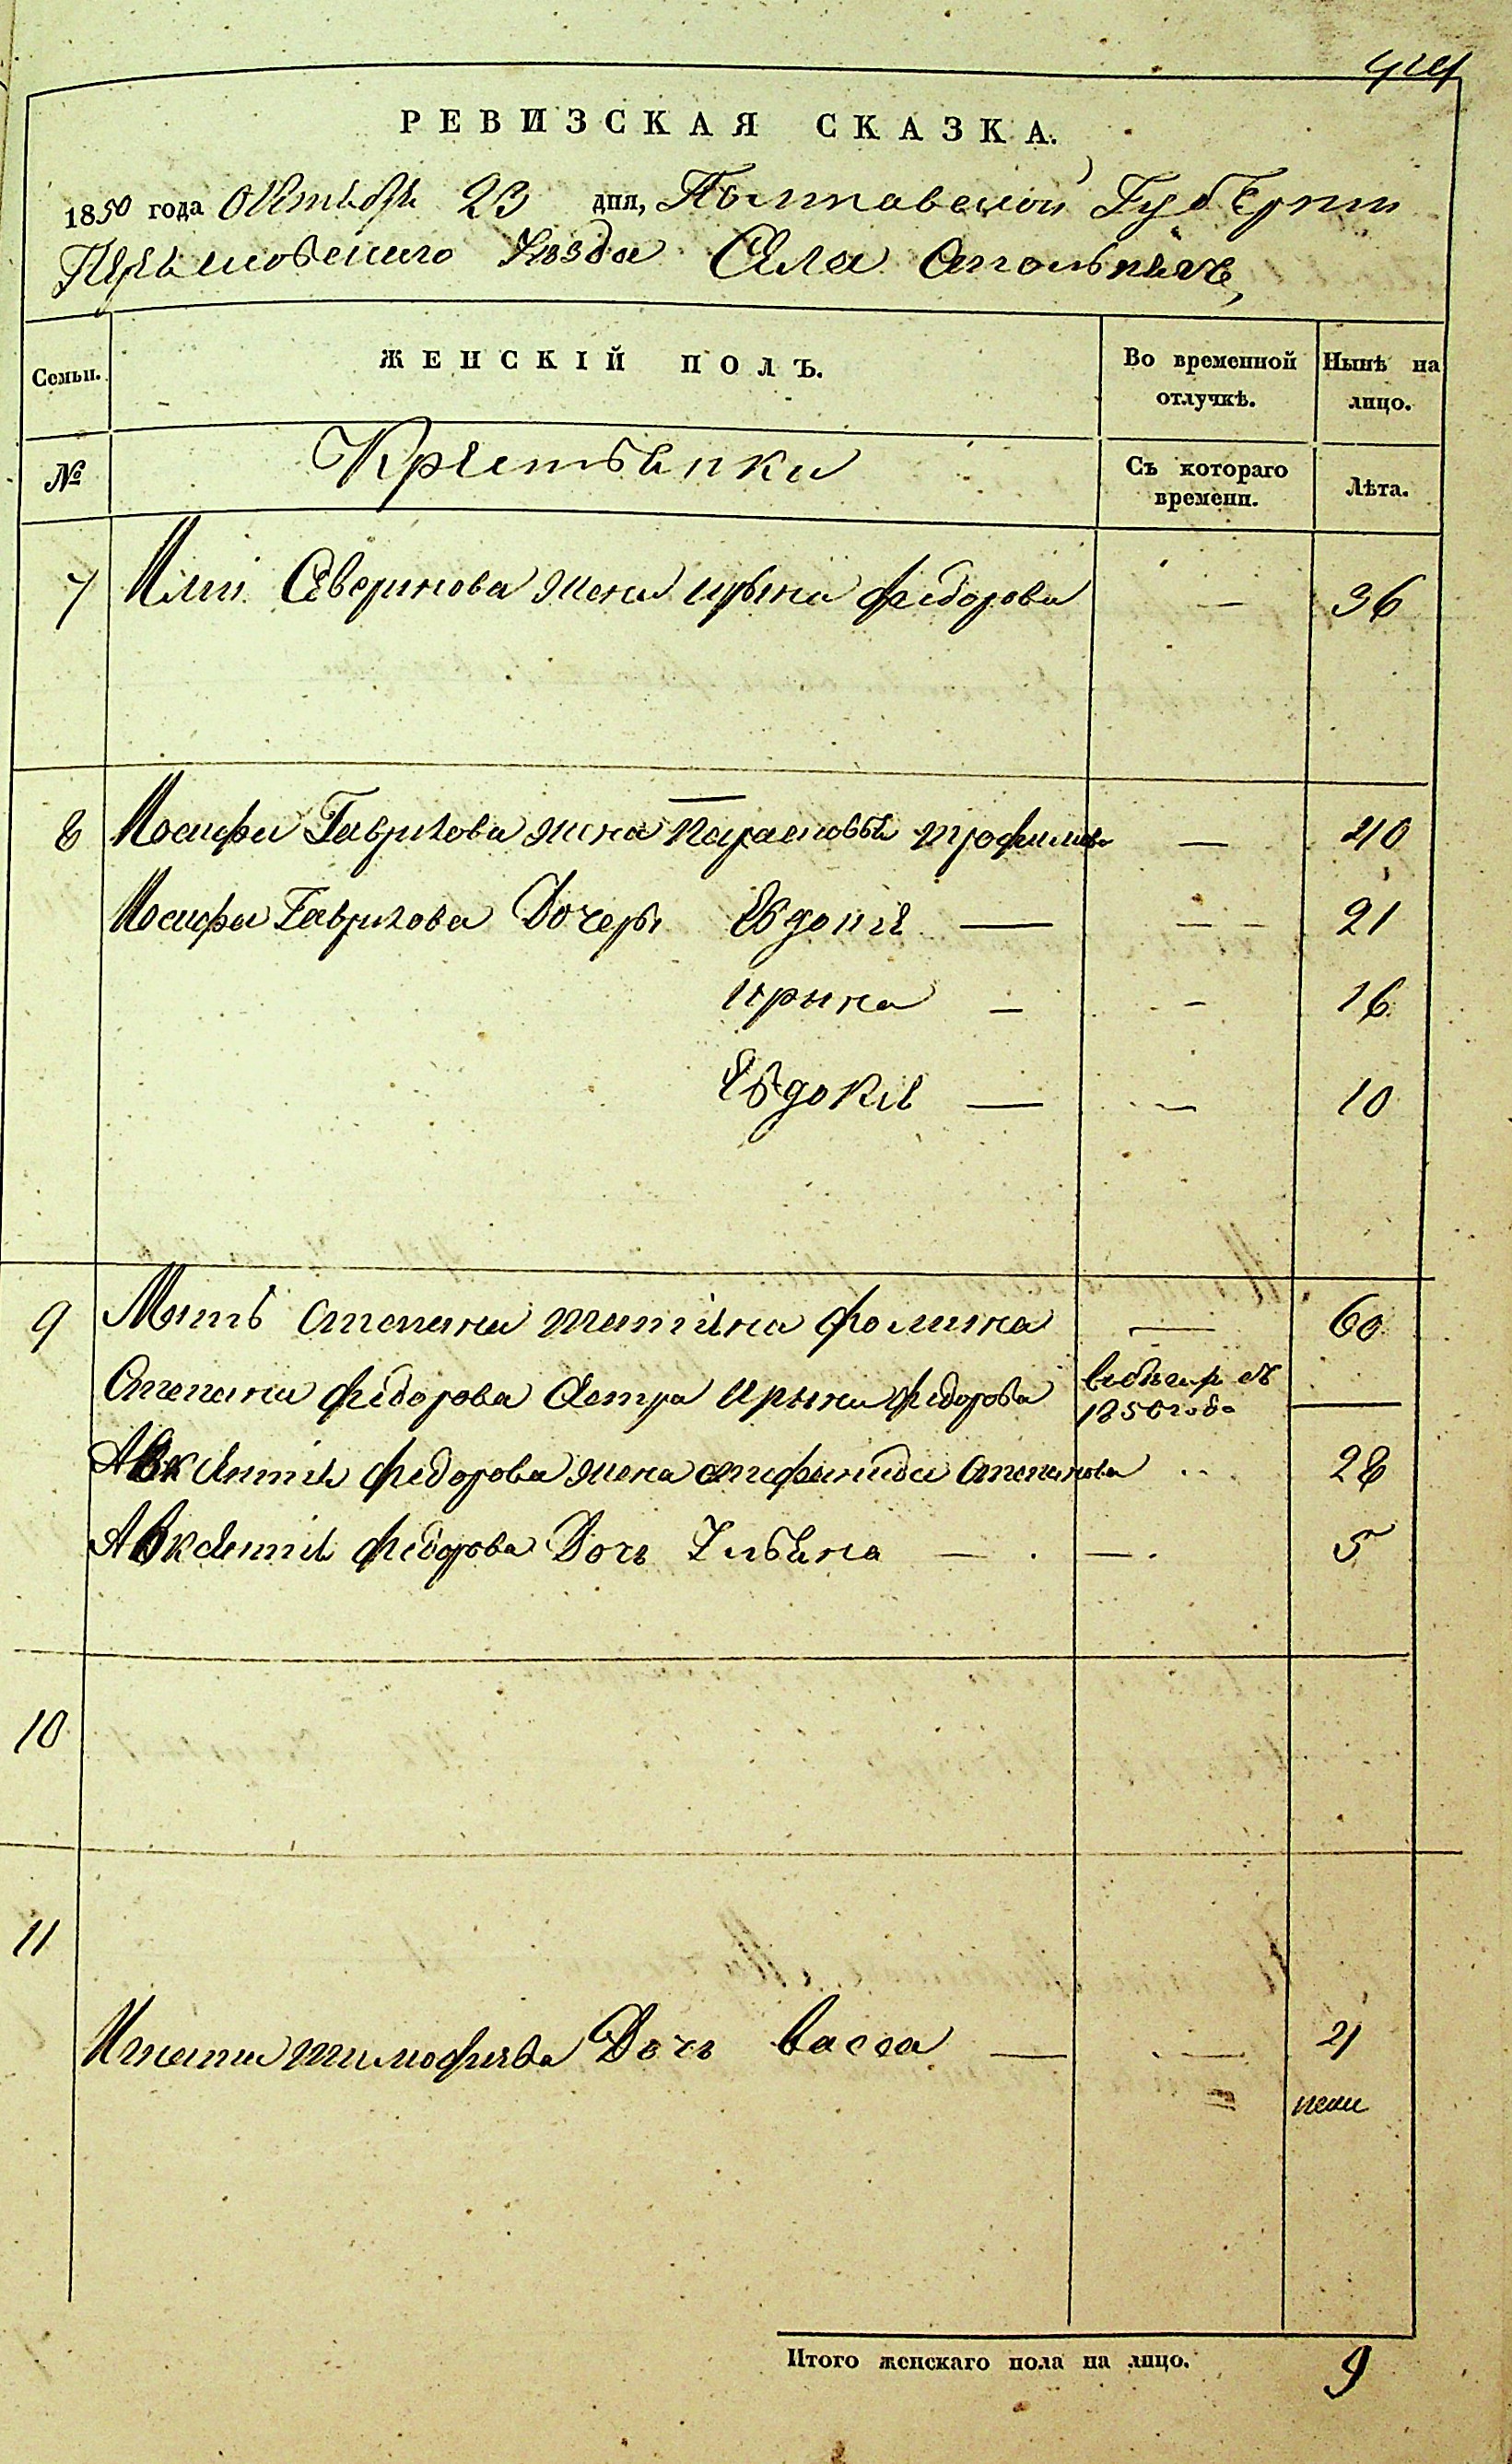 РЕВИЗСКАЯ СКАЗКА.
1850 года Октября 23 дня, Полтавской Губернии
Уезда Села
Семьи. ЖЕНСКІЙ ПОЛЪ. Во временной отлучкѣ. Нынѣ на лицо.
№ Крестьянки Съ котораго времени. Лѣта.
7 Иліи Северинова жена Ирына Федорова — 36
8 Иосифа Гаврилова жена Парасковья Трофимова — 40
Иосифа Гаврилова Дочери Евдокія — — 21
Ирына — — 16
Евдокія — — 10
9 Мать Степана Татіана Фомина — 60
Степана Федорова Сестра Ирына Федорова съ 1850 года —
Авксентія Федорова жена Епифанида Степанова 28
Авксентія Федорова Дочь Ульяна — — 5
10
11
Игната Тимофеева Дочь Васса — — 2
Итого женскаго пола на лицо. 9